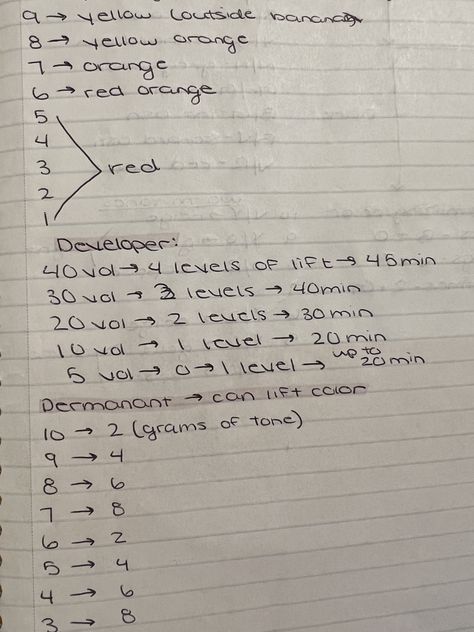 9 → yellow (outside banana)
8 → yellow orange
7 → orange
6 → red orange
5
4
3 red
2
1
Developer:
40 vol → 4 levels of lift → 45 min
30 vol → 3 levels → 40 min
20 vol → 2 levels → 30 min
10 vol → 1 level → 20 min
5 vol → 0 → 1 level → up to 20 min
Permanant → can lift color
10 → 2 (grams of tone)
9 → 4
8 → 6
7 → 8
6 → 2
5 → 4
4 → 6
3 → 8